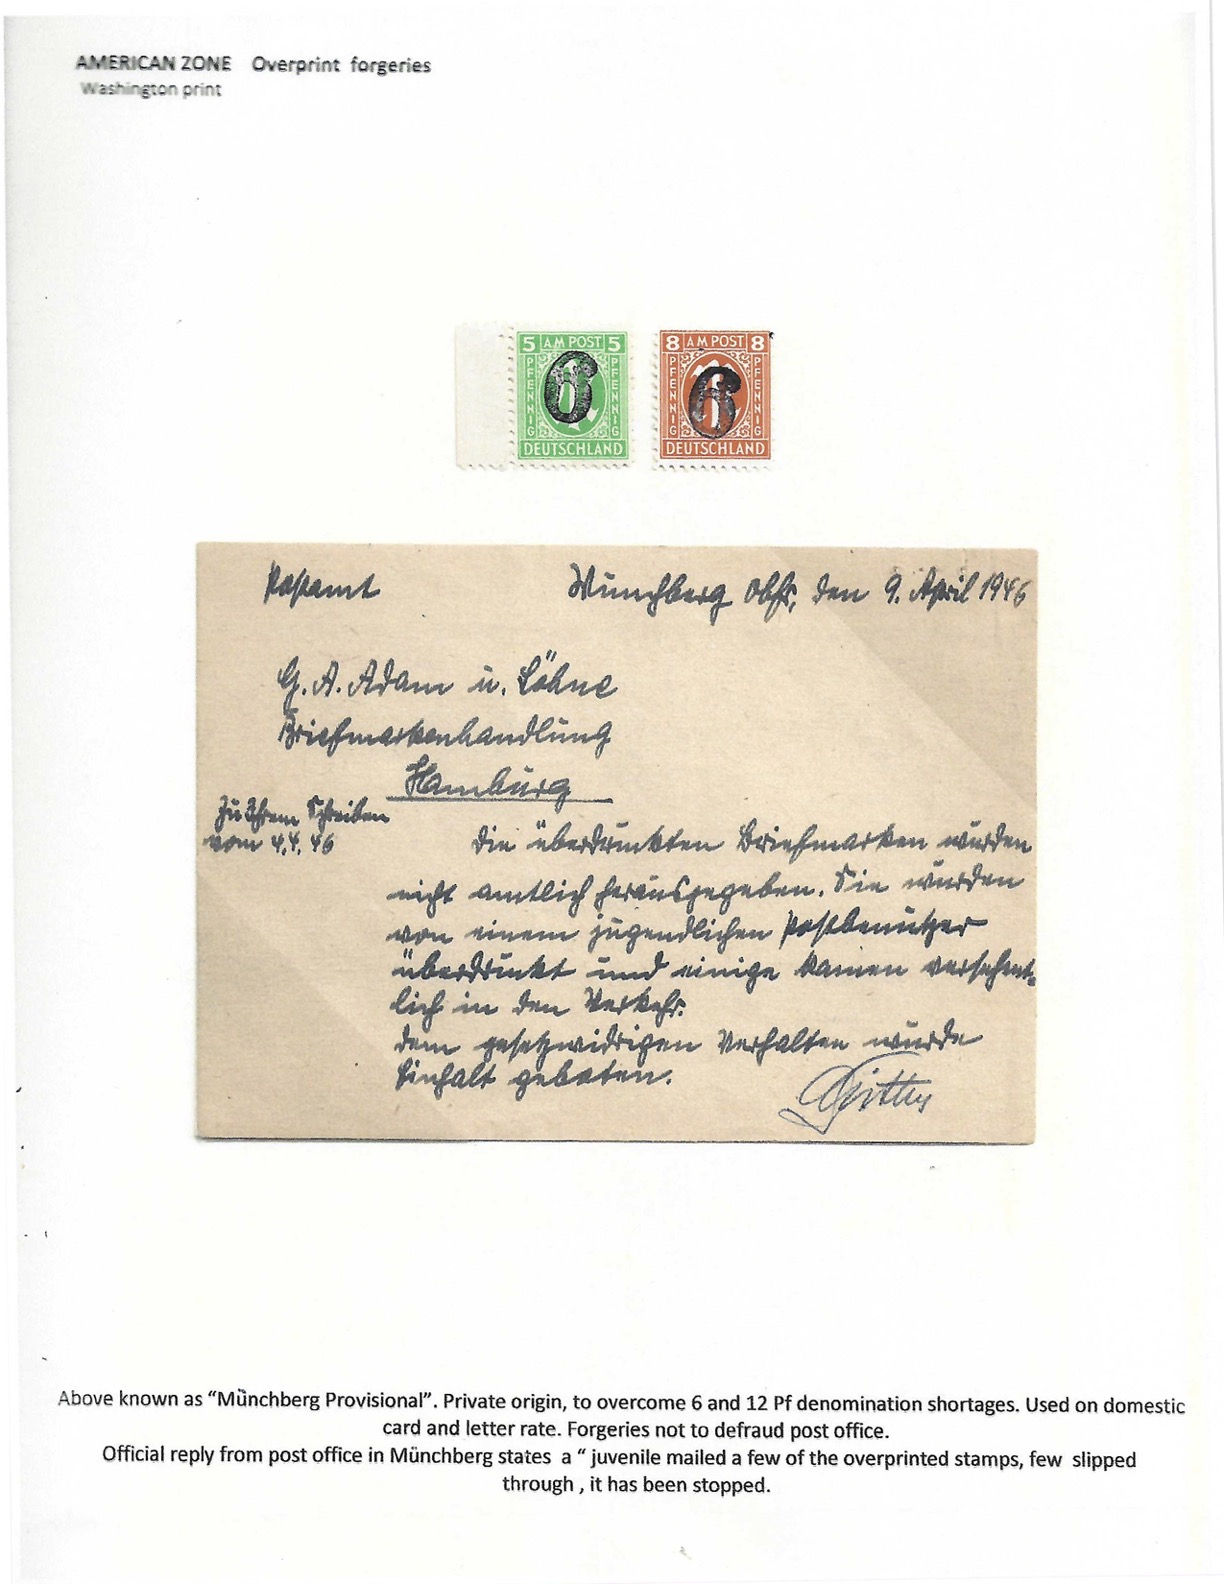 AMERICAN ZONE Overprint forgeries
Washington print
5 AM POST 5
PFENNIG PFENNIG
6
DEUTSCHLAND
8 AM POST 8
PFENNIG PFENNIG
6
DEUTSCHLAND
Postamt Münchberg Obfr, den 9. April 1946
G. A. Adam u. Söhne
Briefmarkenhandlung
Hamburg
Zu Ihrem Schreiben
vom 4.4.46
Die überdruckten Briefmarken wurden
nicht amtlich herausgegeben. Sie wurden
von einem jugendlichen Postbenützer
überdruckt und einige kamen versehent-
lich in den Verkehr.
Dem gesetzwidrigen Verhalten wurde
Einhalt geboten.
Above known as “Münchberg Provisional”. Private origin, to overcome 6 and 12 Pf denomination shortages. Used on domestic
card and letter rate. Forgeries not to defraud post office.
Official reply from post office in Münchberg states a “ juvenile mailed a few of the overprinted stamps, few slipped
through , it has been stopped.